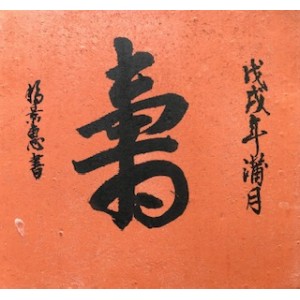 戊戌年蒲月
壽
楊景惠書